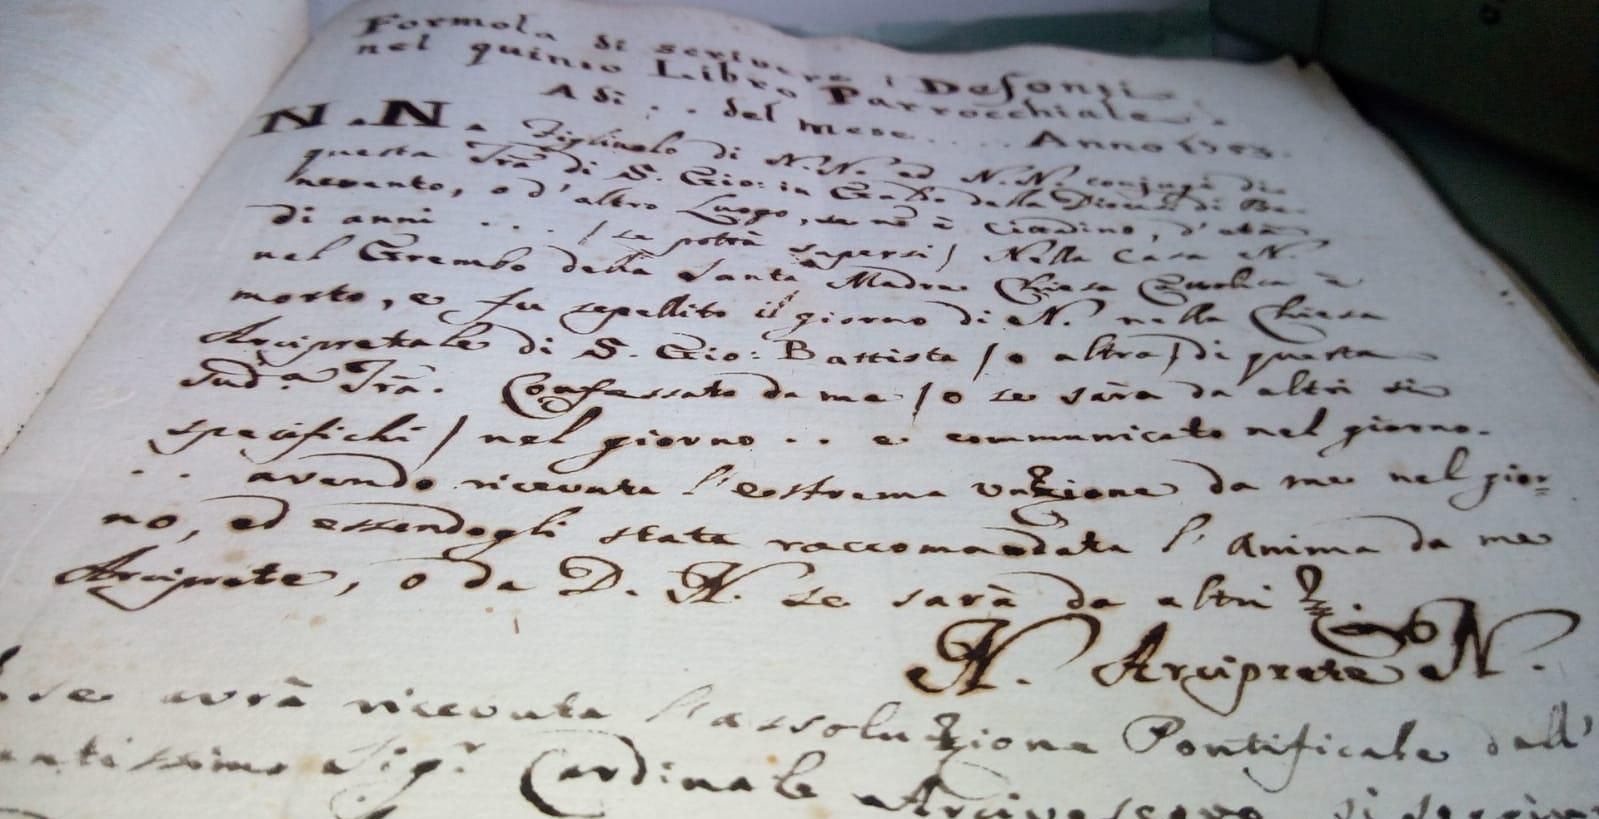 Formola di scrivere i Defonti
nel quinto Libro Parrocchiale.
A di . . del Mese . . . . . Anno
N. N. Figliuolo di N.N. ed N.N. conjugi di
questa Trã di S. Gio: in Galdo della Diocesi di Be-
nevento, o d'altro Luogo, se nõ è Cittadino, d'età
di anni . . . . / se potrà sapersi / Nella Casa N.
nel Grembo della Santa Madre Chiesa Cattolica è
morto, e fu sepellito il giorno di N. nella Chiesa
Arcipretale di S. Gio: Battista / o altra / di questa
Sudª Trã. Confessato da me / o se sarà da altri si
specifichi / nel giorno . . e communicato nel giorno.
. . avendo ricevuta l'estrema unzione da me nel gior=
no, ed essendogli stata raccomandata l'Anima da me
Arciprete, o da D. N. se sarà da altri
N. Arciprete N.
se avrà ricevuta l'assoluzione Pontificale dall'
Sigʳ Cardinale Arcivescovo